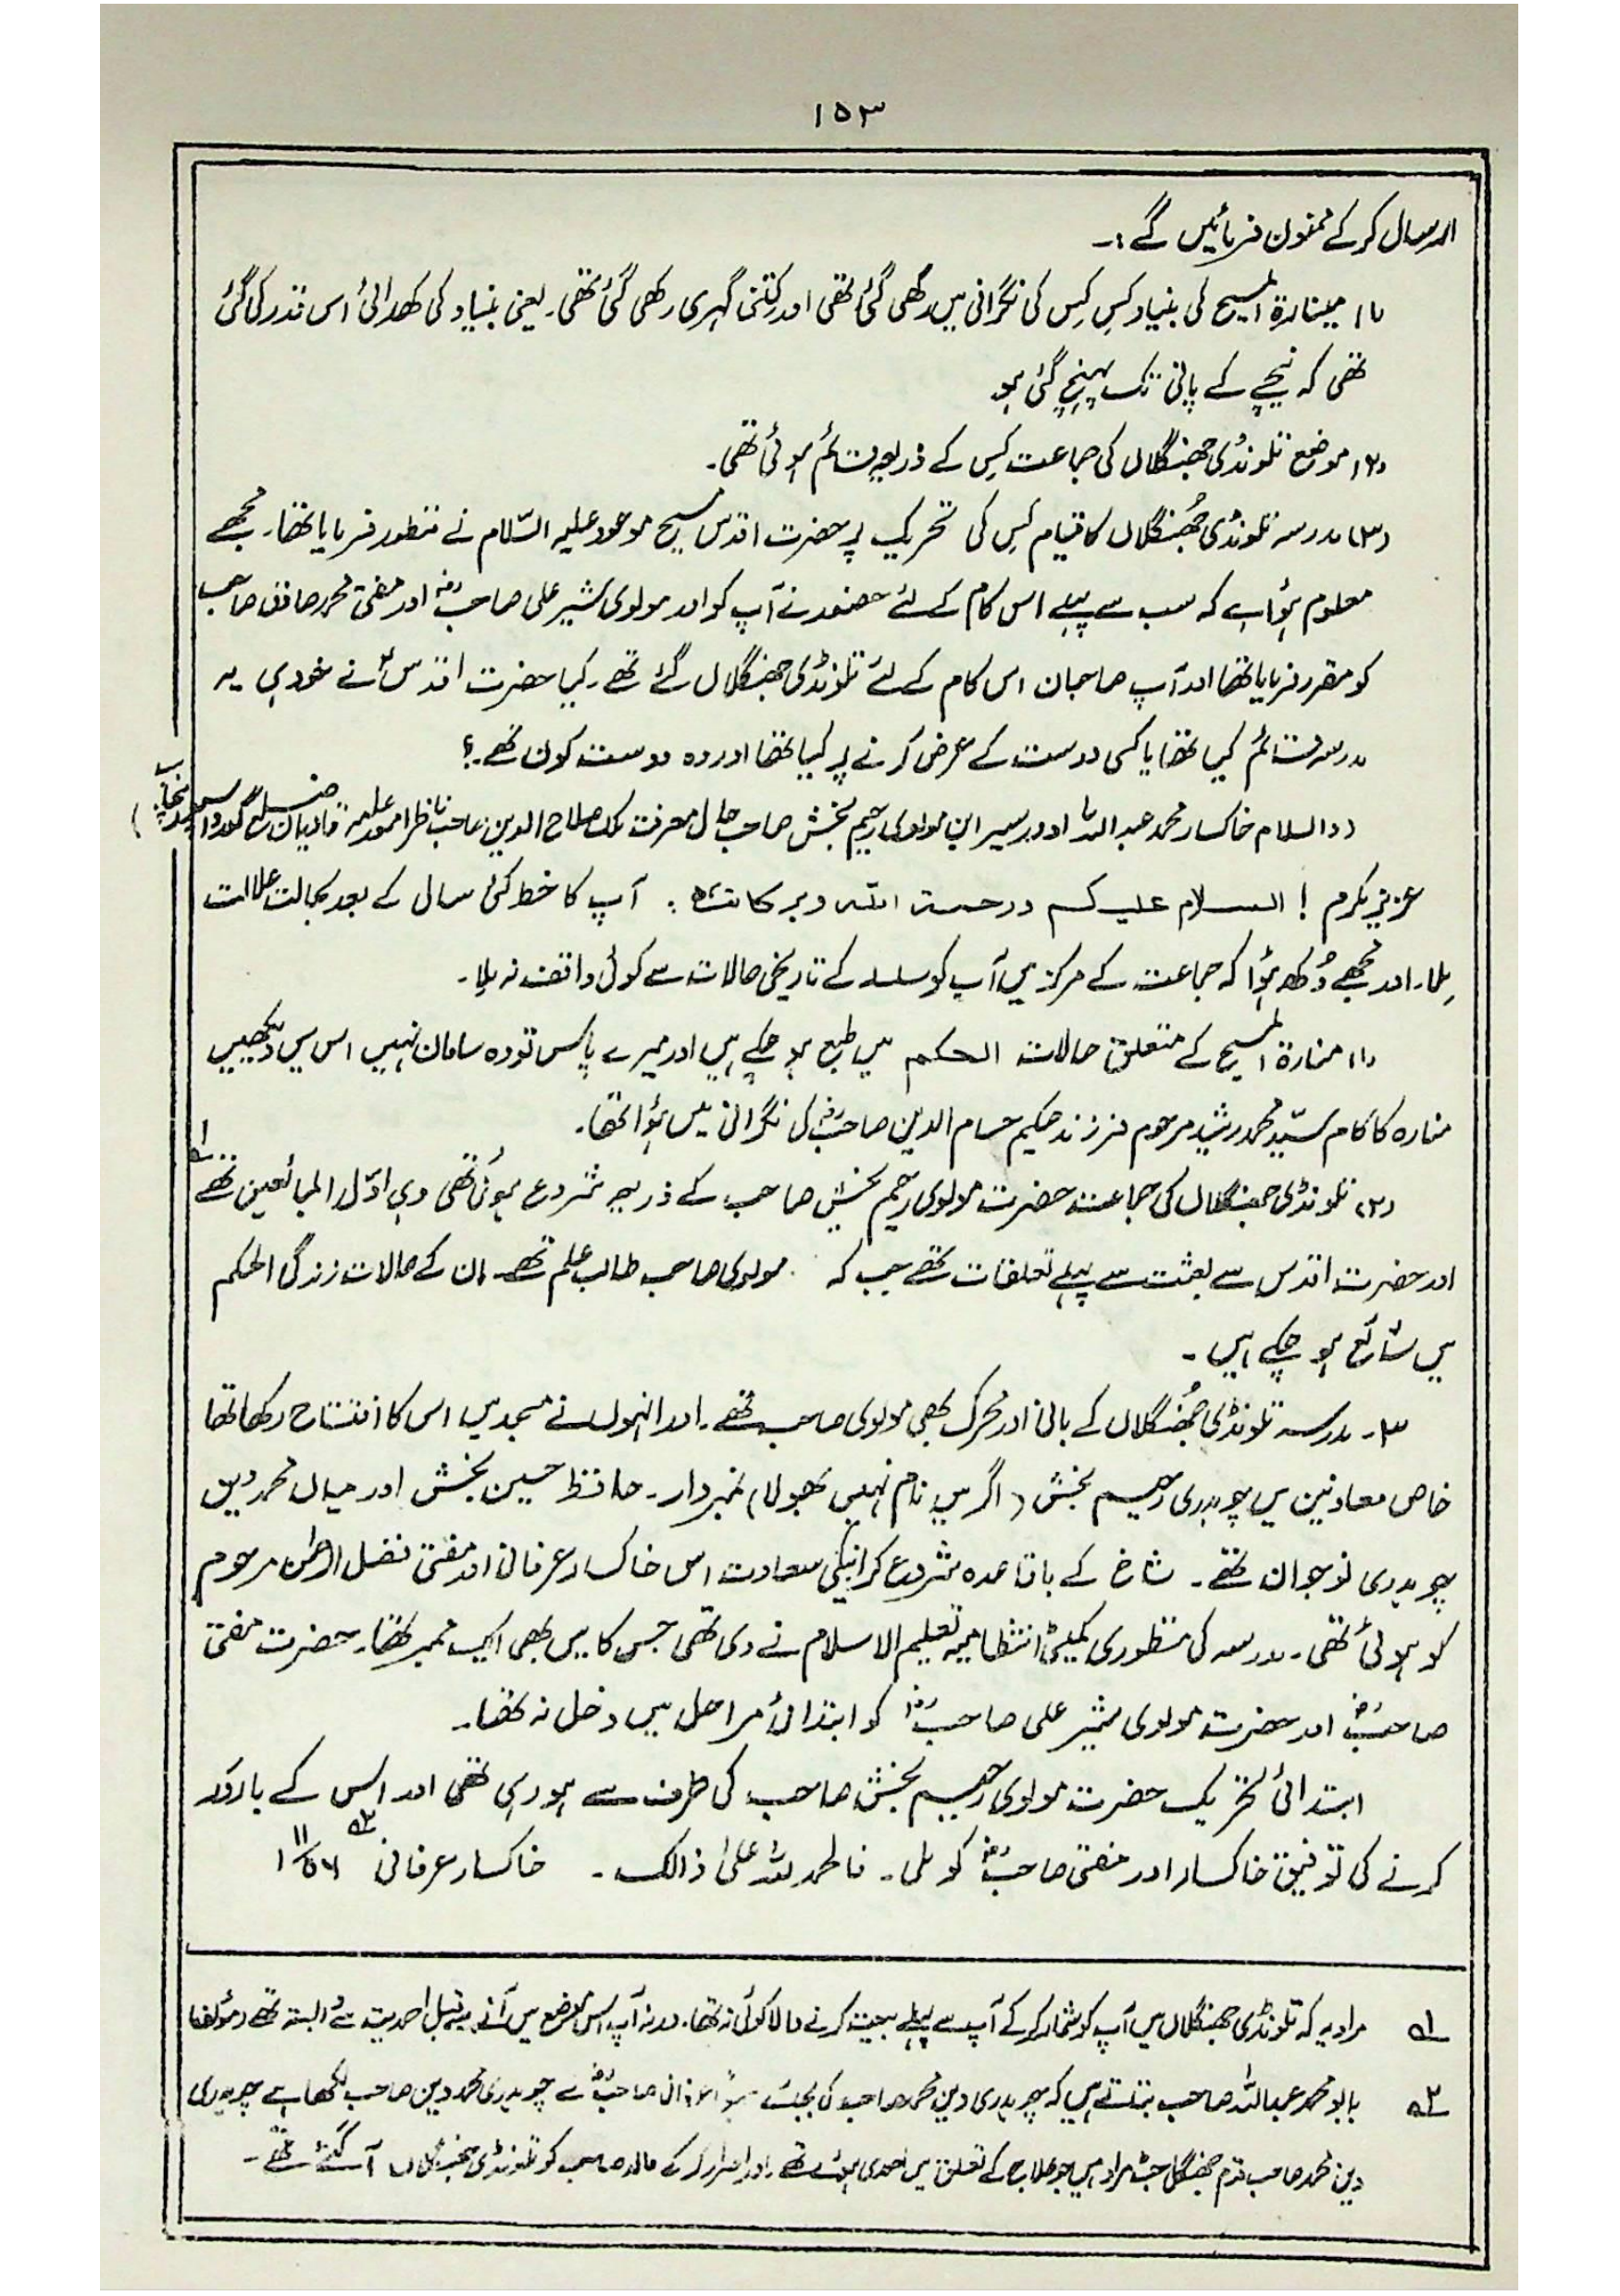 ۱۵۳
ارسال کر کے ممنون فرمائیں گے:۔
(۱) مینارۃ المسیح کی بنیاد کس کس کی نگرانی میں رکھی گئی تھی اور کتنی گہری رکھی گئی تھی۔ یعنی بنیاد کی کھدائی اس قدر کی گئی
تھی کہ نیچے کے پانی تک پہنچ گئی ہو
(۲) موضع تلونڈی جھنگلاں کی جماعت کِس کے ذریعہ قائم ہوئی تھی۔
(۳) مدرسہ تلونڈی جُھنگلاں کا قیام کِس کی تحریک پر حضرت اقدس مسیح موعود علیہ السّلام نے منظور فرمایا تھا۔ مجھے
معلوم ہؤا ہے کہ سب سے پہلے اس کام کے لئے حضور نے آپ کو اور مولوی شیر علی صاحبؓ اور مفتی محمد صادق صاحب
کو مقرر فرمایا تھا اور آپ صاحبان اس کام کے لئے تلونڈی جھنگلاں گئے تھے۔ کیا حضرت اقدسؑ نے خود ہی یہ
مدرسہ قائم کیا تھا یا کسی دوست کے عرض کرنے پر کیا تھا اور وہ دوست کون تھے۔؟
(والسلام خاکسار محمد عبداللہ اوورسیر ابن مولوی رحیم بخش صاحب حال معرفت ملک صلاح الدین صاحب ناظر امور عامہ قادیان ضلع گورداسپور پنجاب)
عزیز مکرم! السلام علیکم ورحمۃ اللہ وبرکاتہٗ: آپ کا خط کئی سال کے بعد بحالت علالت
مِلا۔ اور مجھے دُکھ ہؤا کہ جماعت کے مرکز میں آپ کو سلسلہ کے تاریخی حالات سے کوئی واقف نہ مِلا۔
(۱) منارۃ المسیح کے متعلق حالات الحکم میں طبع ہو چکے ہیں اور میرے پاس تو وہ سامان نہیں اس میں دیکھیں
منارہ کا کام سیّد محمد رشید مرحوم فرزند حکیم حسام الدین صاحبؓ کی نگرانی میں ہؤا تھا۔
(۲) تلونڈی جھنگلاں کی جماعت حضرت مولوی رحیم بخش صاحب کے ذریعہ شروع ہوئی تھی وہی اوّل المبائعین تھے ۱؎
اور حضرت اقدس سے بعثت سے پہلے تعلقات تھے جب کہ مولوی صاحب طالب علم تھے۔ ان کے حالات زندگی الحکم
میں شائع ہو چکے ہیں۔
۳۔ مدرسہ تلونڈی جُھنگلاں کے بانی اور محرک بھی مولوی صاحب تھے۔ اور انہوں نے مسجد میں اس کا افتتاح رکھا تھا
خاص معاونین میں چوہدری رحیم بخش (اگر میں نام نہیں بھولا) نمبردار۔ حافظ حسین بخش اور میاں محمد دین
چوہدری نوجوان تھے۔ شاخ کے باقاعدہ شروع کرانیکی سعادت اس خاکسار عرفانی اور مفتی فضل الرحمٰن مرحوم
کو ہوئی تھی۔ مدرسہ کی منظوری کمیٹی انتظامیہ تعلیم الاسلام نے دی تھی جس کا میں بھی ایک ممبر تھا۔ حضرت مفتی
صاحبؓ اور حضرت مولوی شیر علی صاحبؓ کو ابتدائی مراحل میں دخل نہ تھا۔
ابتدائی تحریک حضرت مولوی رحیم بخش صاحب کی طرف سے ہو رہی تھی اور اس کے بارآور
کرنے کی توفیق خاکسار اور مفتی صاحبؓ کو ملی۔ فالحمد للہ علیٰ ذالک۔ خاکسار عرفانی ۲؎ ۱ ۱۱/۵۶
۱؎ مراد یہ کہ تلونڈی جھنگلاں میں آپ کو شمار کر کے آپ سے پہلے بیعت کرنے والا کوئی نہ تھا۔ ورنہ آپ اس موضع میں آنے سے قبل احمدیت سے وابستہ تھے (مؤلف)
۲؎ بابو محمد عبداللہ صاحب بتلاتے ہیں کہ چوہدری دین محمد صاحب کی بجائے سہواً عرفانی صاحبؓ نے چوہدری محمد دین صاحب لکھا ہے چوہدری
دین محمد صاحب قوم جھنگل جٹ مراد ہیں جو علاج کے تعلق میں احمدی ہوئے تھے اور اصرار کر کے والد صاحب کو تلونڈی جھنگلاں آ گئے تھے۔